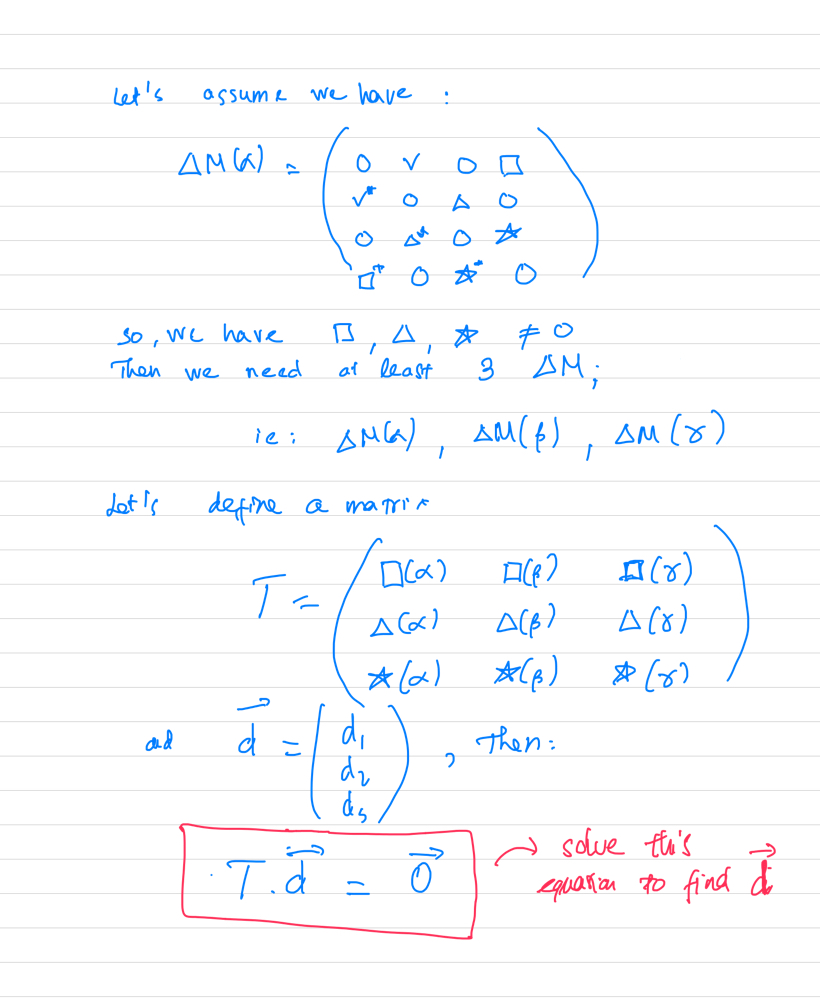 Let's assume we have :
ΔM(α) = ( 0 ✓ 0 □
✓* 0 Δ 0
0 Δ* 0 ☆
□* 0 ☆* 0 )
so, we have □, Δ, ☆ ≠ 0
Then we need at least 3 ΔM;
ie: ΔM(α), ΔM(β), ΔM(γ)
Let's define a matrix
T = ( □(α) □(β) □(γ)
Δ(α) Δ(β) Δ(γ)
☆(α) ☆(β) ☆(γ) )
and d⃗ = ( d₁
d₂
d₃ ) , Then:
T.d⃗ = 0⃗ → solve this
equation to find d⃗